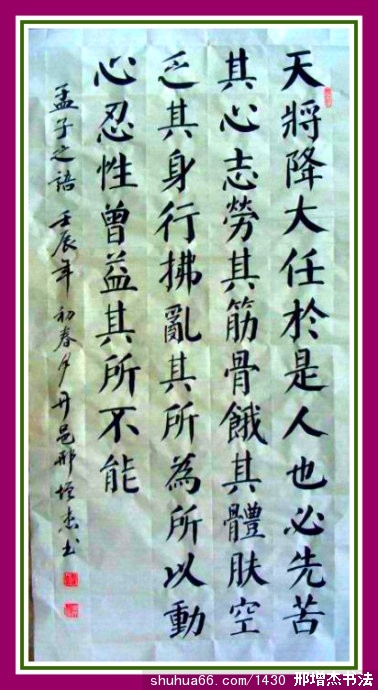 天將降大任於是人也必先苦
其心志勞其筋骨餓其體肤空
乏其身行拂亂其所為所以動
心忍性曾益其所不能
孟子之語 壬辰年初春月丹邑邢增杰书
shuhua66.com/1430 邢增杰书法